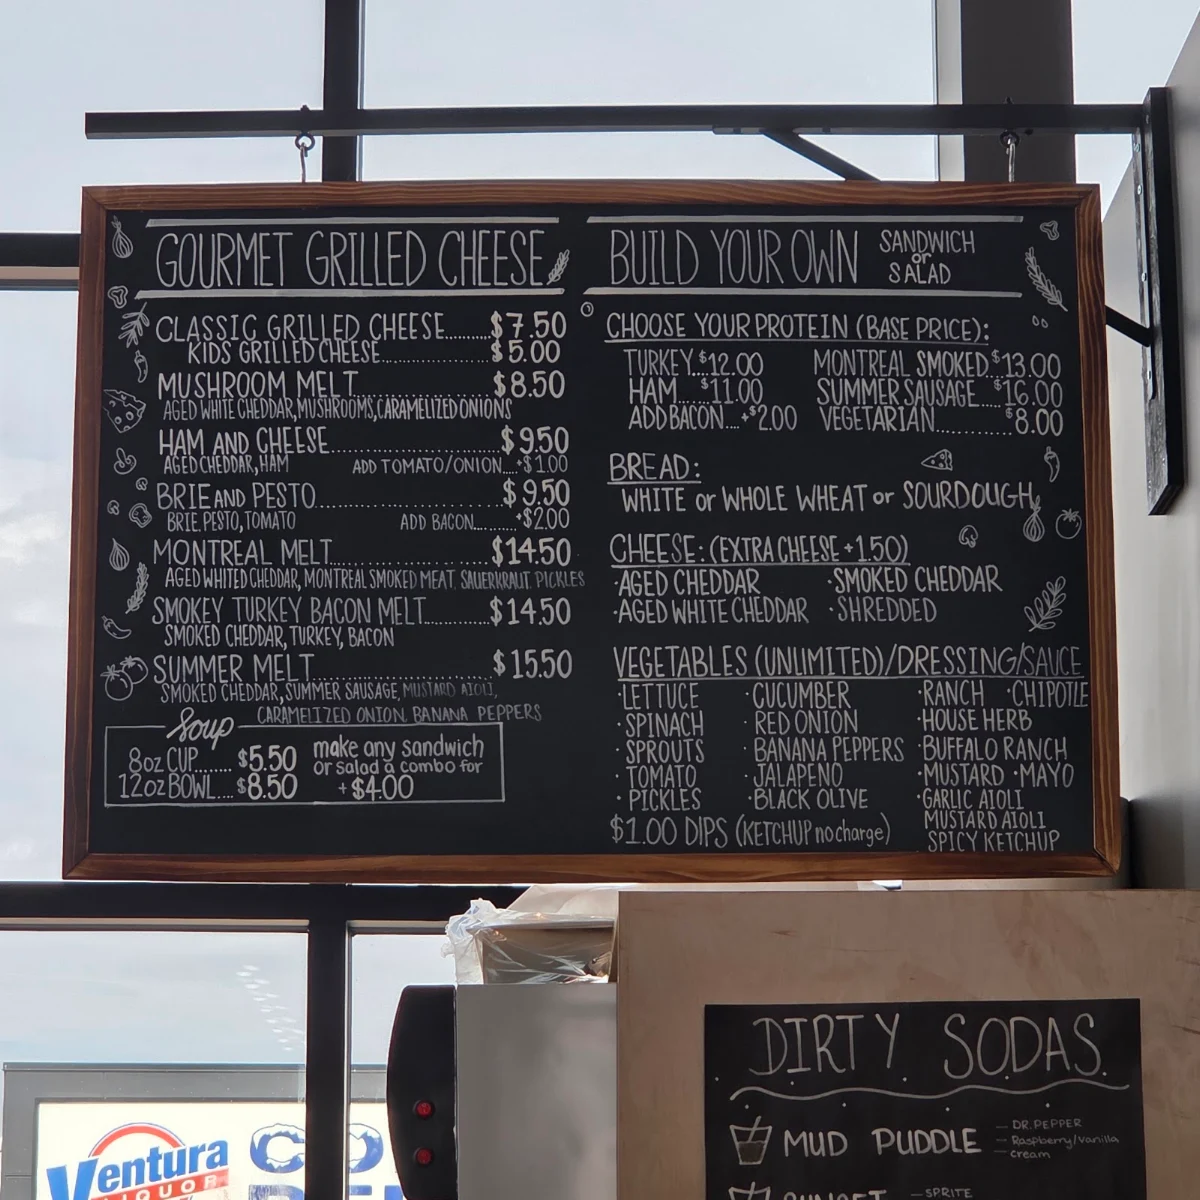 GOURMET GRILLED CHEESE
CLASSIC GRILLED CHEESE.......... $7.50
KIDS GRILLED CHEESE.................. $5.00
MUSHROOM MELT........................ $8.50
AGED WHITE CHEDDAR, MUSHROOMS, CARAMELIZED ONIONS
HAM AND CHEESE........................ $9.50
AGED CHEDDAR, HAM ADD TOMATO/ONION....+$1.00
BRIE AND PESTO........................... $9.50
BRIE, PESTO, TOMATO ADD BACON.........+$2.00
MONTREAL MELT........................ $14.50
AGED WHITED CHEDDAR, MONTREAL SMOKED MEAT, SAUERKRAUT PICKLES
SMOKEY TURKEY BACON MELT.......... $14.50
SMOKED CHEDDAR, TURKEY, BACON
SUMMER MELT........................... $15.50
SMOKED CHEDDAR, SUMMER SAUSAGE, MUSTARD AIOLI,
CARAMELIZED ONION, BANANA PEPPERS
Soup
8oz CUP....... $5.50
12oz BOWL.... $8.50
make any sandwich
or salad a combo for
+$4.00
BUILD YOUR OWN SANDWICH
or
SALAD
CHOOSE YOUR PROTEIN (BASE PRICE):
TURKEY...$12.00 MONTREAL SMOKED..$13.00
HAM.......$11.00 SUMMER SAUSAGE....$16.00
ADD BACON....+$2.00 VEGETARIAN............$8.00
BREAD:
WHITE or WHOLE WHEAT or SOURDOUGH
CHEESE: (EXTRA CHEESE +1.50)
·AGED CHEDDAR ·SMOKED CHEDDAR
·AGED WHITE CHEDDAR ·SHREDDED
VEGETABLES (UNLIMITED)/DRESSING/SAUCE
·LETTUCE ·CUCUMBER ·RANCH ·CHIPOTLE
·SPINACH ·RED ONION ·HOUSE HERB
·SPROUTS ·BANANA PEPPERS ·BUFFALO RANCH
·TOMATO ·JALAPENO ·MUSTARD ·MAYO
·PICKLES ·BLACK OLIVE ·GARLIC AIOLI
MUSTARD AIOLI
$1.00 DIPS (KETCHUP no charge) SPICY KETCHUP
DIRTY SODAS
MUD PUDDLE
— DR. PEPPER
— Raspberry/Vanilla
— cream
— SPRITE
Ventura
LIQUOR